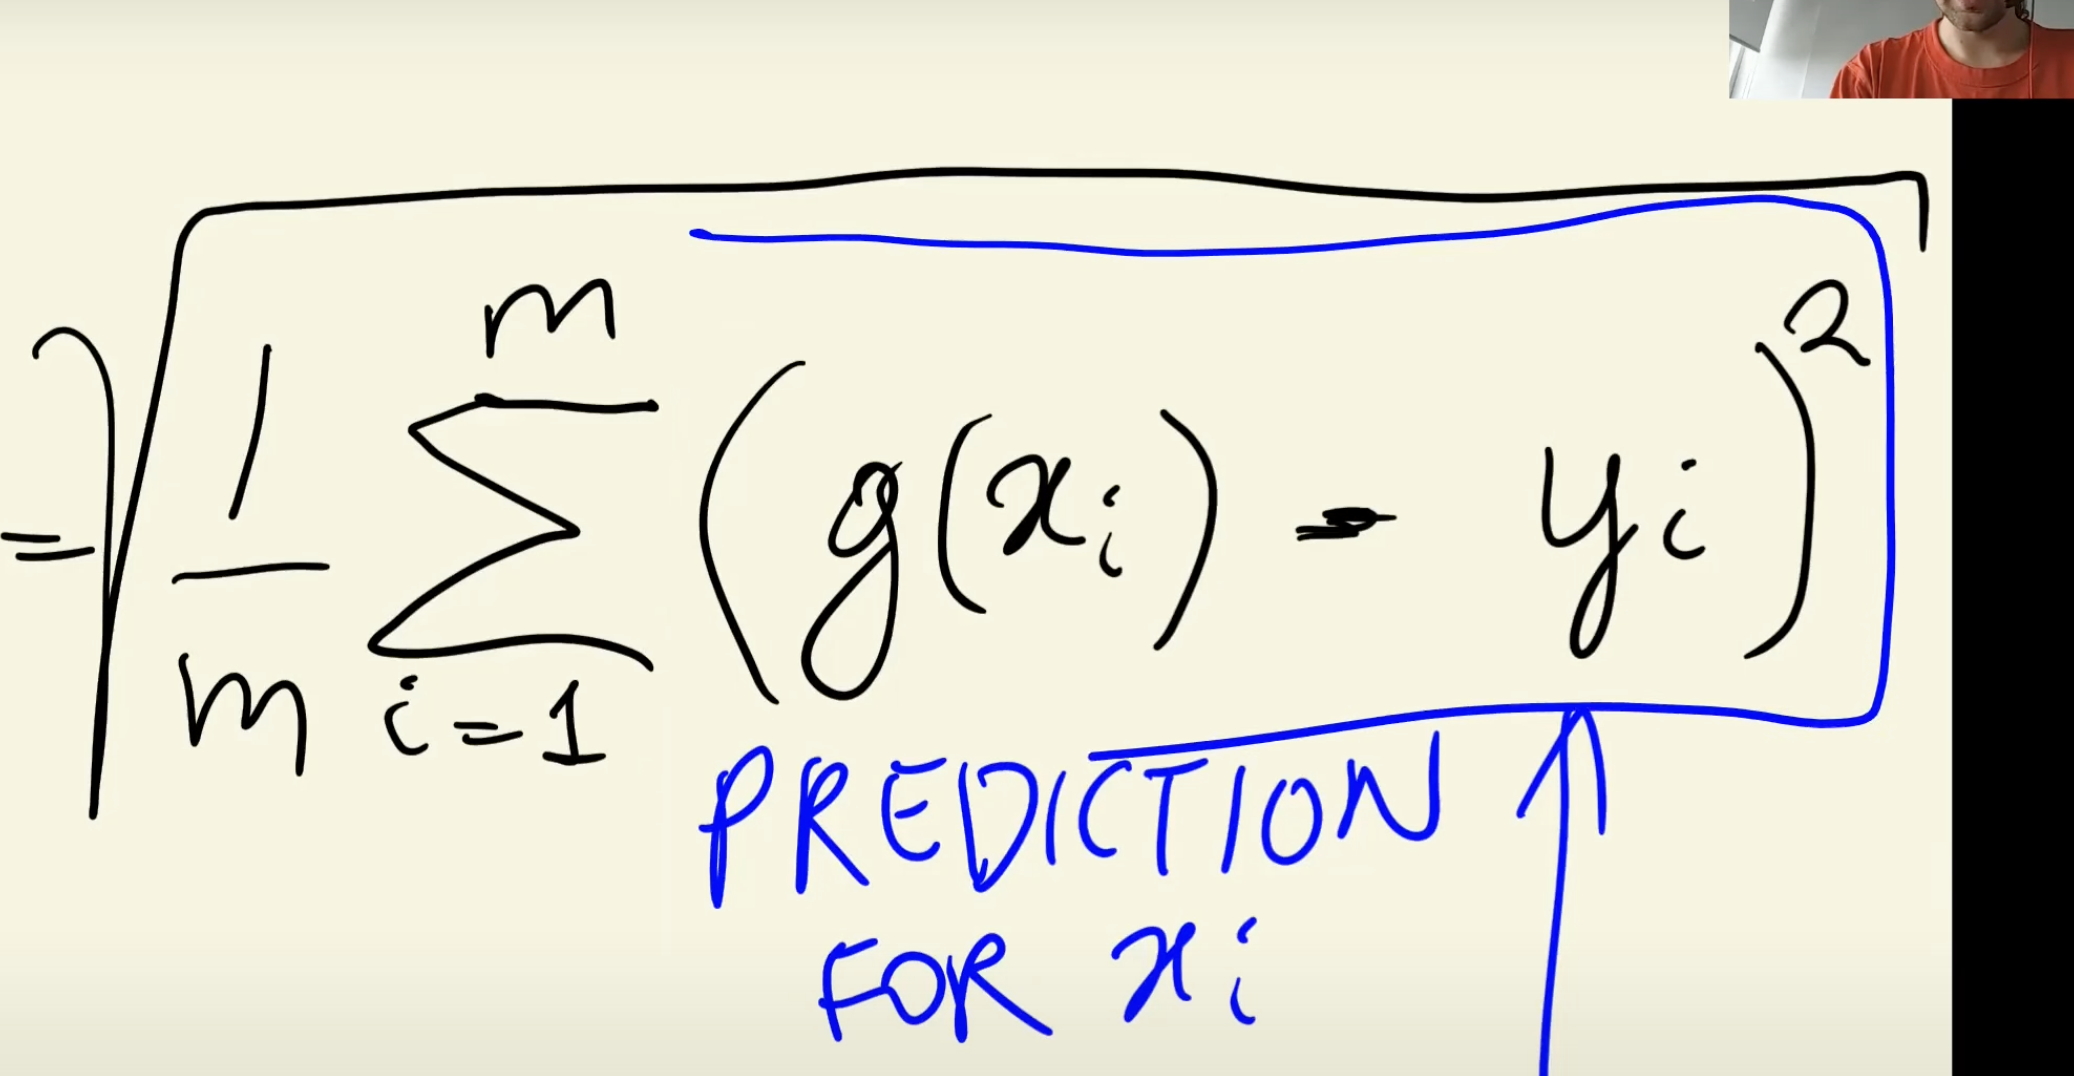 = √(1/m ∑_{i=1}^{m} (g(x_i) - y_i)^2)
PREDICTION
FOR x_i